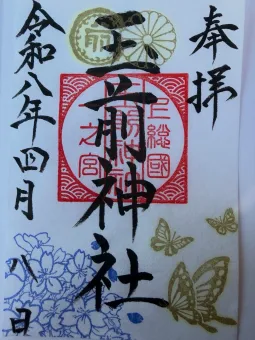 奉拝
上総國
玉前神社
一之宮
令和八年四月八日